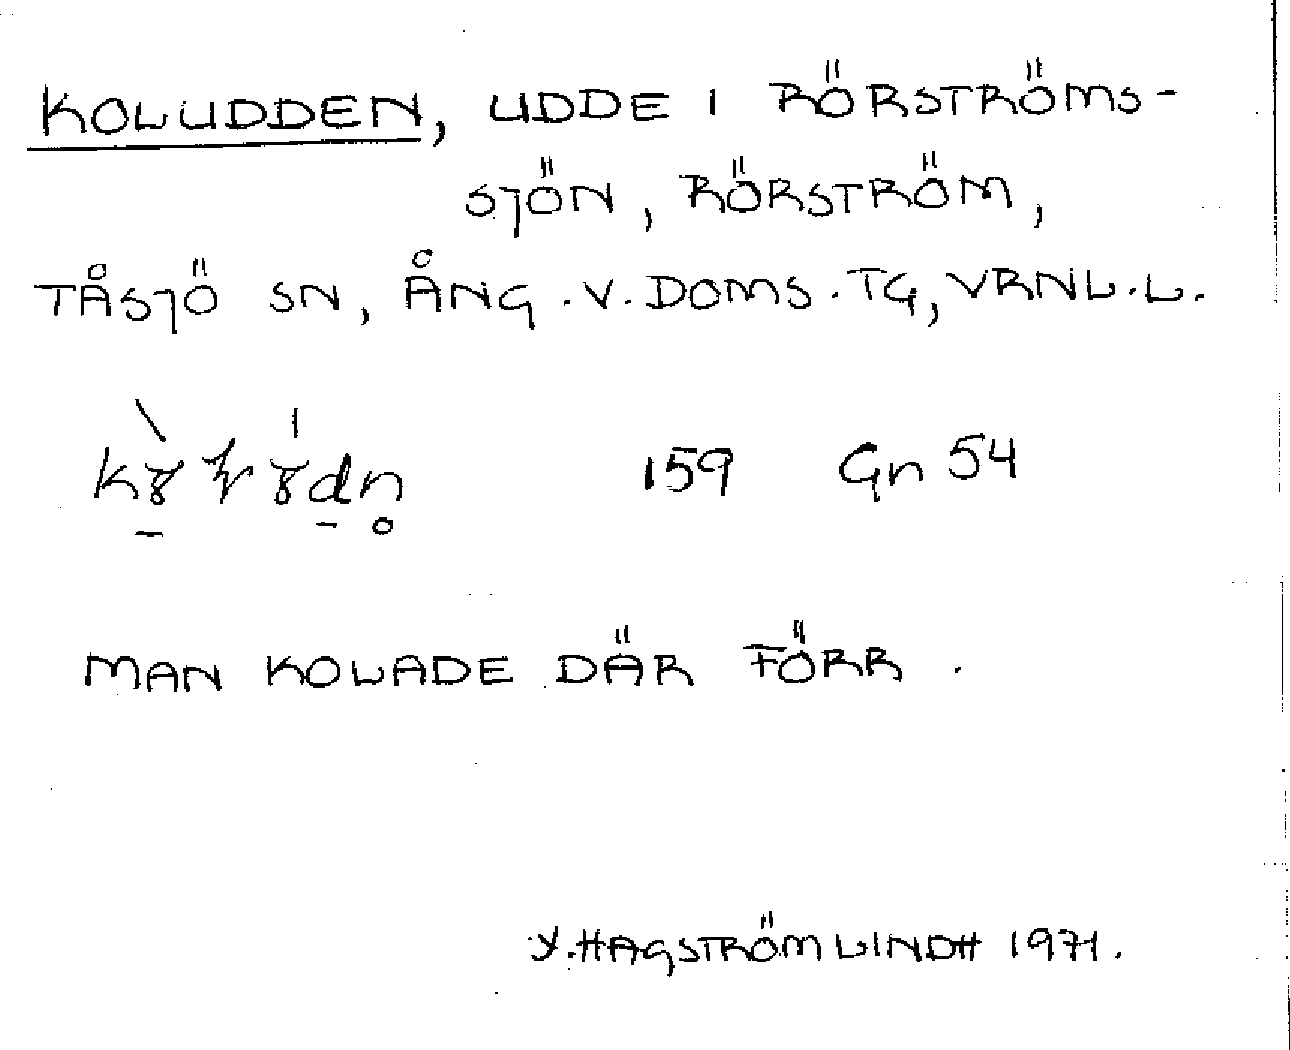 KOLUDDEN, UDDE I RÖRSTRÖMS-
SJÖN, RÖRSTRÖM,
TÅSJÖ SN, ÅNG.V.DOMS.TG, VRNL.L.
159 Gn 54
MAN KOLADE DÄR FÖRR.
Y.HAGSTRÖM LINDH 1971.